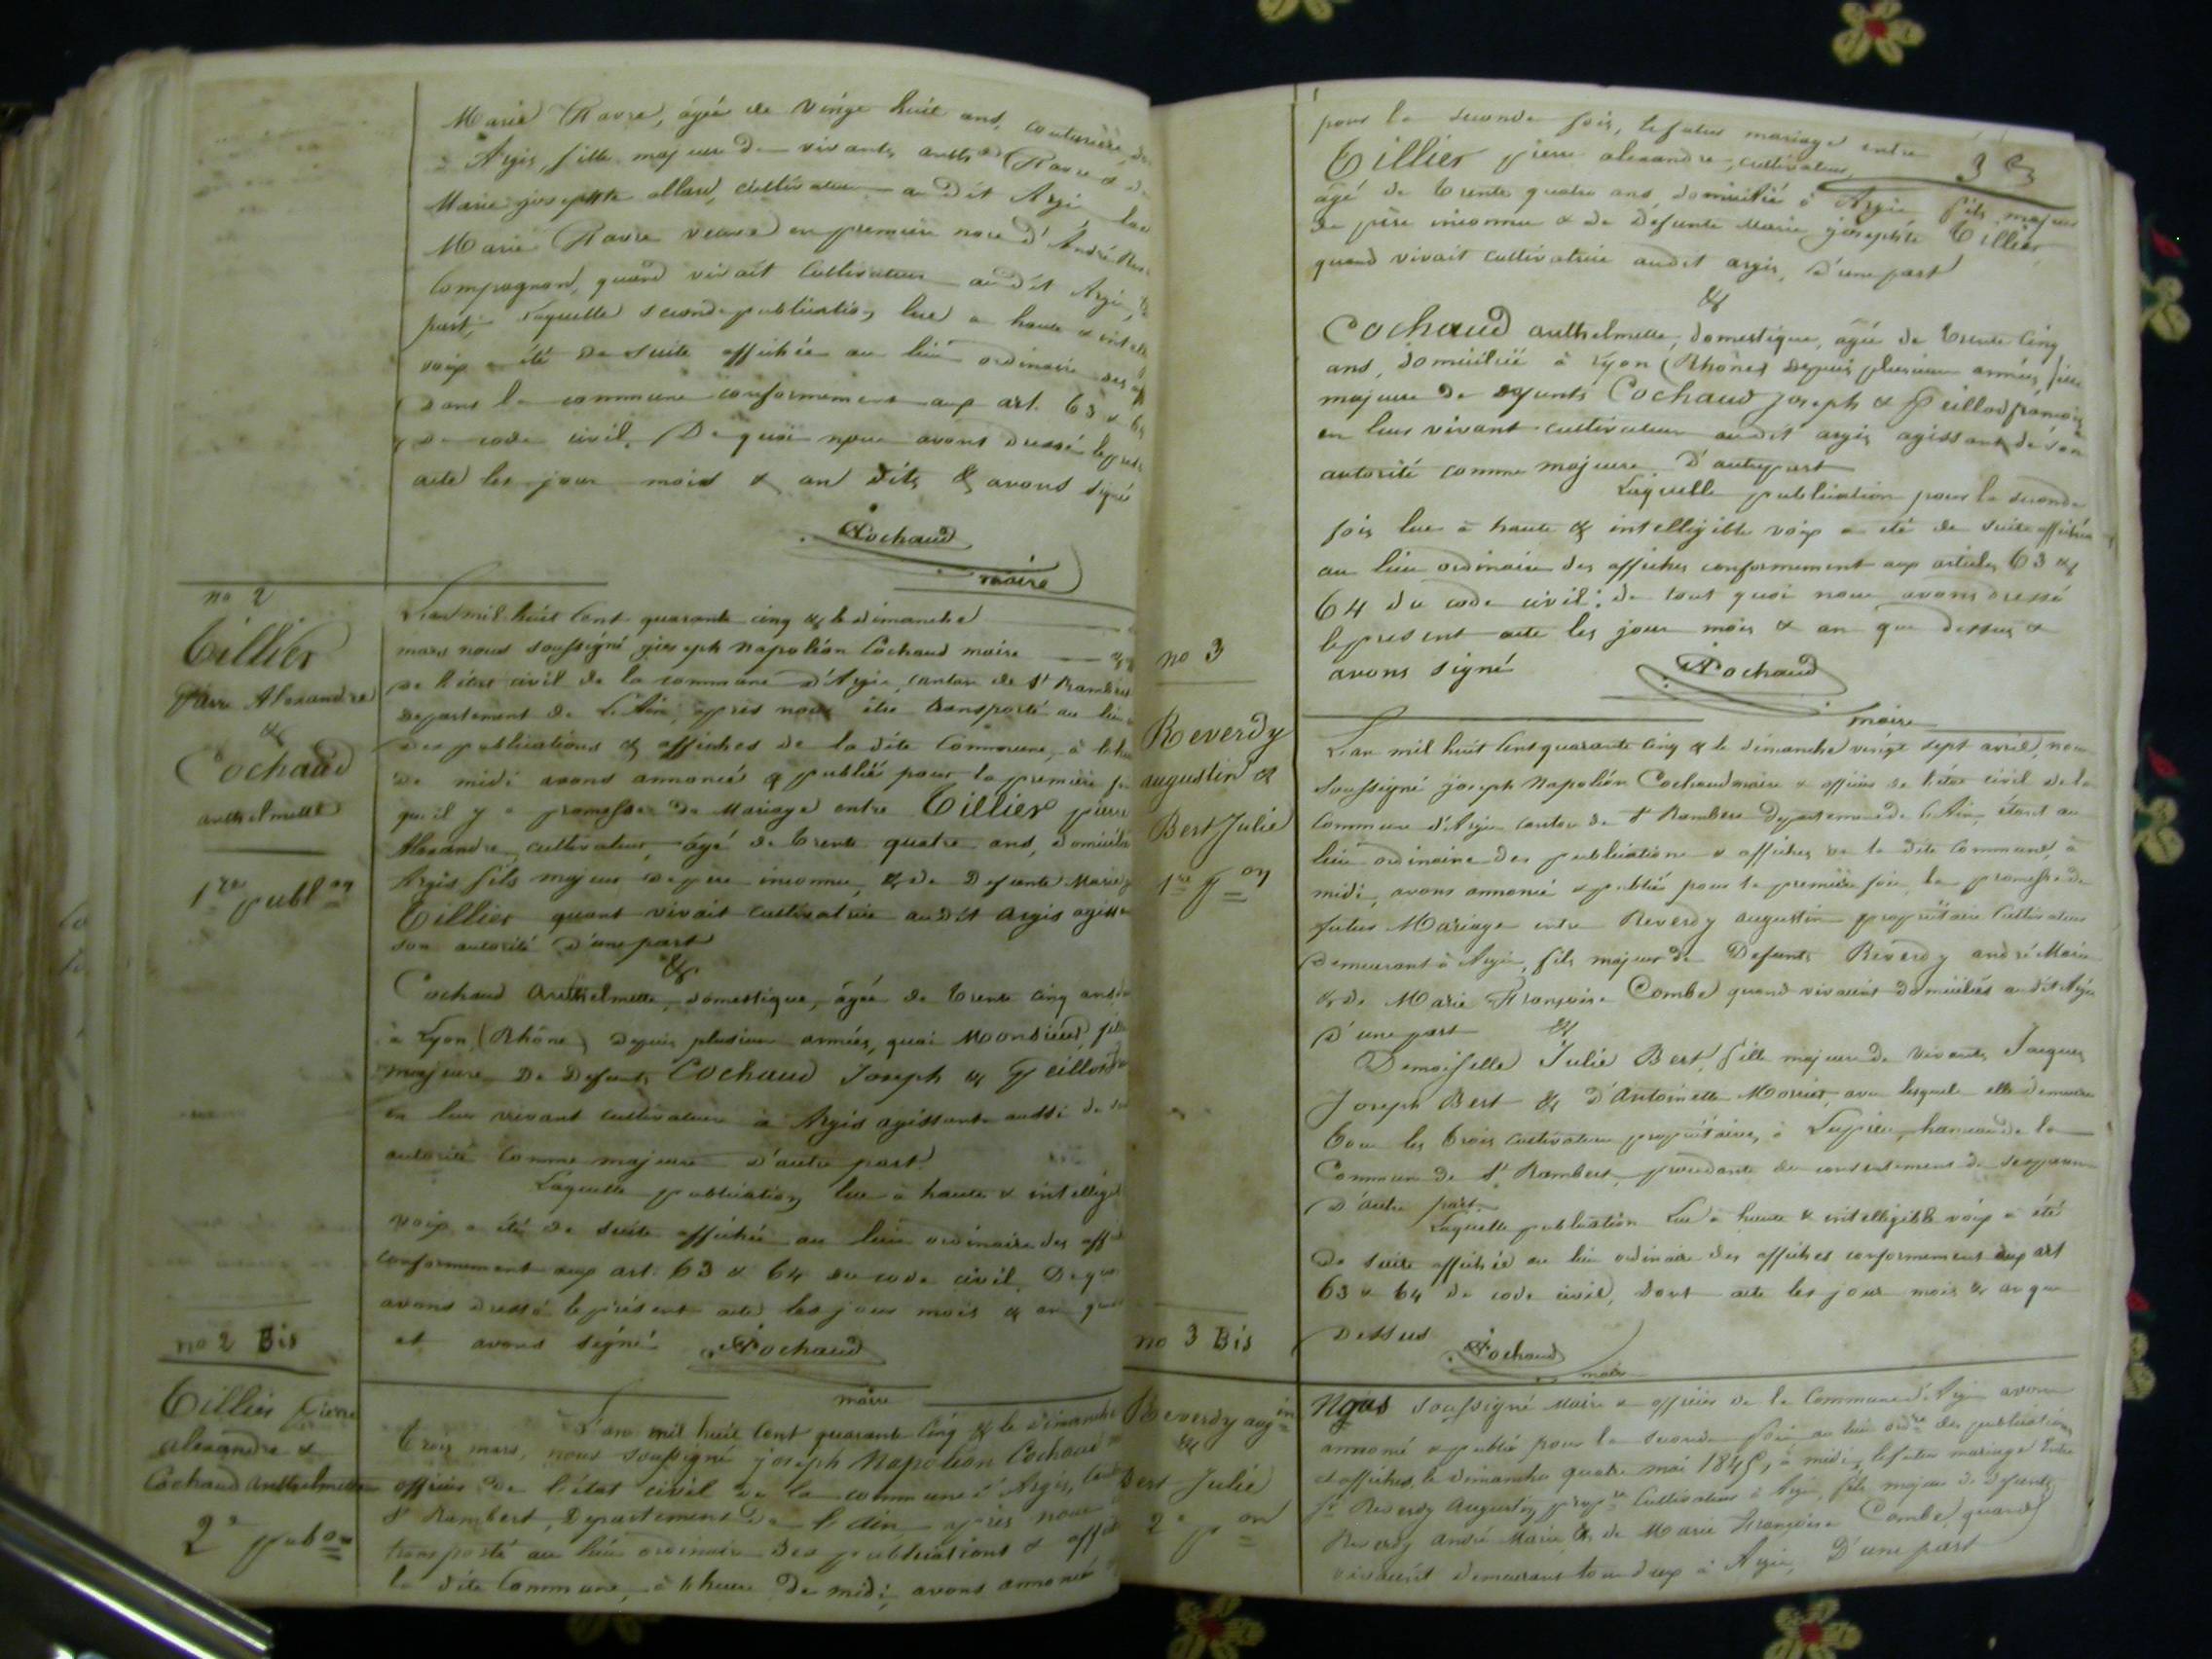 Marie Ravre, agée de vingt huit ans, couturière
à Argis, fille majeure de vivants Ravre & de
Marie josephte allard, cultivateurs au dit Argis
Marie Ravre veuve en première noce d'André
Compagnon, quand vivait Cultivateur au dit Argis,
part; Laquelle seconde publication, lue a haute & intell
voix a été de suite affichée au lieu ordinaire des
dans la commune conformement aux art. 63 & 64
du code civil. De quoi nous avons dressé le prés
acte les jour mois & an dits & avons signé
Cochaud
maire
no 2
Tillier
Pierre Alexandre
&
Cochaud
anthelmette
1re publon
L'an mil huit cent quarante cinq & le dimanche
mars nous soussigné joseph napoléon Cochaud maire
de l'état civil de la commune d'Argis, canton de St Rambert
departement de L'Ain, après nous être transporté au lieu
des publications & affiches de la dite Commune, à
de midi avons annoncé & publié pour la première
qu'il y a promesse de Mariage entre Tillier pierre
Alexandre, cultivateur, agé de trente quatre ans, domicilié
Argis fils majeur de père inconnu, & de Defunte Marie
Tillier quant vivait cultivatrice au dit Argis agiss
son autorité d'une part
&
Cochaud Anthelmette, domestique, âgée de trente cinq ans
à Lyon (Rhône) depuis plusieurs années,
majeure De Defunts Cochaud Joseph & Peillod
en leur vivant cultivateurs à Argis agissante aussi de
autorité comme majeure d'autre part.
Laquelle publication lue à haute & intelligi
voix a été de suite affichée au lieu ordinaire des aff
conformement aux art. 63 & 64 du code civil. De quoi
avons dressé le présent acte les jour mois & an que
et avons signé Cochaud
maire
no 2 Bis
Tillier Pierre
alexandre &
Cochaud Anthelmette
2e pubon
L'an mil huit cent quarante cinq & le dimanche
trois mars, nous soussigné joseph Napoléon Cochaud
officier de l'état civil de la commune d'Argis,
St Rambert, Departement de l'Ain, après nous
transporté au lieu ordinaire des publications & aff
la dite Commune, à l'heure de midi, avons annoncé
33
pour la seconde fois, le futur mariage entre
Tillier pierre alexandre, cultivateur,
âgé de trente quatre ans, domicilié à Argis fils majeur
de père inconnu & de Defunte Marie josephte Tillier
quand vivait cultivatrice audit argis, d'une part
&
Cochaud anthelmette, domestique, âgée de trente cinq
ans, domiciliée à Lyon (Rhône) depuis plusieurs années, fille
majeure de defunts Cochaud joseph & Peillod françoise
en leur vivant cultivateurs audit argis agissant de son
autorité comme majeure. D'autre part
Laquelle publication pour la seconde
fois lue à haute & intelligible voix a été de suite affichée
au lieu ordinaire des affiches conformement aux articles 63 &
64 du code civil; de tout quoi nous avons dressé
le present acte les jour mois & an que dessus &
avons signé Cochaud
maire
no 3
Reverdy
augustin &
Bert Julie
1re Pon
L'an mil huit cent quarante cinq & le dimanche vingt sept avril, nous
soussigné joseph Napoléon Cochaud maire & officier de l'état civil de la
Commune d'Argis canton de St Rambert departement de l'Ain, étant au
lieu ordinaire des publications & affiches de la dite Commune, à
midi, avons annoncé & publié pour la première fois, la promesse de
futur Mariage entre Reverdy augustin proprietaire Cultivateur
demeurant à Argis, fils majeur de Defunts Reverdy andré Marie
& de Marie Françoise Combe quand vivaient domiciliés au dit Argis
d'une part &
Demoiselle Julie Bert, fille majeure de vivants Jacques
Joseph Bert & d'Antoinette avec lesquels elle demeure
tous les trois cultivateurs proprietaires, à hameau de la
Commune de St Rambert, procedante du consentement de
d'autre part.
Laquelle publication lue à haute & intelligible voix a été
de suite affichée au lieu ordinaire des affiches conformement aux art
63 & 64 du code civil, dont acte les jour mois & an que
dessus Cochaud
maire
no 3 Bis
Reverdy augin
&
Bert Julie
2e pon
Nous soussigné Maire & officier de la Commune d'Argis avons
annoncé & publié pour la seconde fois, au lieu ordre des publications
et affiches, le dimanche quatre mai 1845, à midi, le futur mariage Entre
Sr Reverdy Augustin propre Cultivateur à Argis, fils majeur de defunts
Reverdy André Marie & de Marie Françoise Combe, quand
vivaient demeurant tous deux à Argis, D'une part